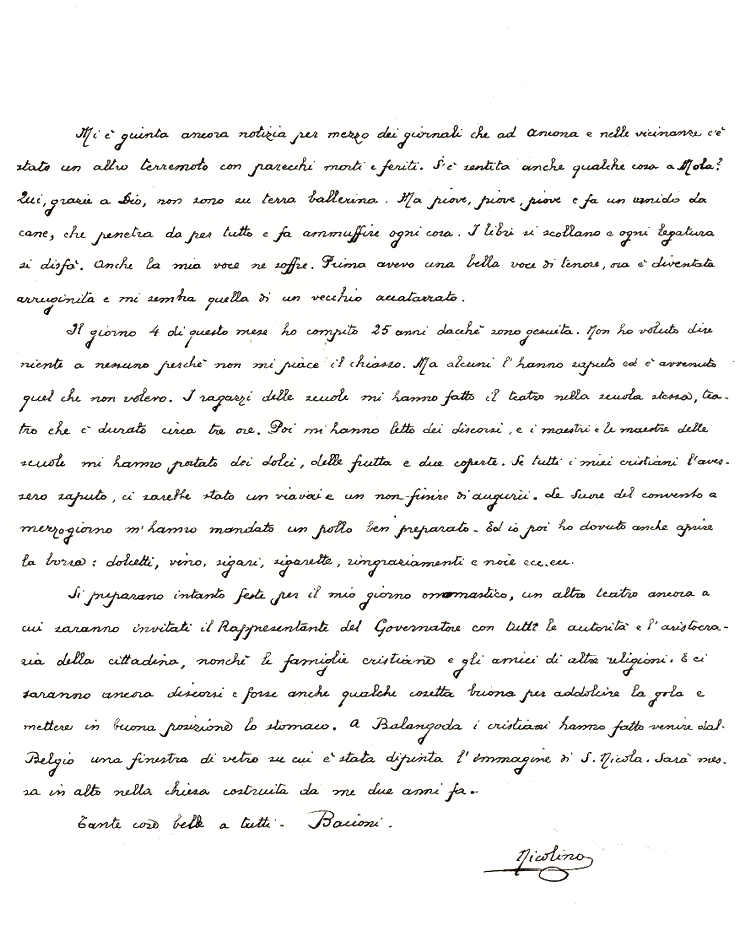 Mi è giunta ancora notizia per mezzo dei giornali che ad Ancona e nelle vicinanze c'è
stato un altro terremoto con parecchi morti e feriti. S'è sentita anche qualche cosa a Mola?
Qui, grazie a Dio, non sono su terra ballerina. Ma piove, piove, piove e fa un umido da
cane, che penetra da per tutto e fa ammuffire ogni cosa. I libri si scollano e ogni legatura
si disfà. Anche la mia voce ne soffre. Prima avevo una bella voce di tenore, ora è diventata
arruginita e mi sembra quella di un vecchio accatarrato.
Il giorno 4 di questo mese ho compito 25 anni dacchè sono gesuita. Non ho voluto dire
niente a nessuno perchè non mi piace il chiasso. Ma alcuni l'hanno saputo ed è avvenuto
quel che non volevo. I ragazzi delle scuole mi hanno fatto il teatro nella scuola stessa, tea-
tro che è durato circa tre ore. Poi mi hanno letto dei discorsi, e i maestri e le maestre delle
scuole mi hanno portato dei dolci, delle frutta e due coperte. Se tutti i miei cristiani l'aves-
sero saputo, ci sarebbe stato un viavai e un non-finire di augurii. Le Suore del convento a
mezzogiorno m'hanno mandato un pollo ben preparato. Ed io poi ho dovuto anche aprire
la borsa: dolcetti, vino, sigari, sigarette, ringraziamenti e noie ecc. ecc.
Si preparano intanto feste per il mio giorno onomastico, un altro teatro ancora a
cui saranno invitati il Rappresentante del Governatore con tutte le autorità e l'aristocra-
zia della cittadina, nonchè le famiglie cristiane e gli amici di altre religioni. E ci
saranno ancora discorsi e forse anche qualche cosetta buona per addolcire la gola e
mettere in buona posizione lo stomaco. A Balangoda i cristiani hanno fatto venire dal
Belgio una finestra di vetro su cui è stata dipinta l'Immagine di S. Nicola. Sarà mes-
sa in alto nella chiesa costruita da me due anni fa.
Tante cose belle a tutti. Bacioni.
Nicolino